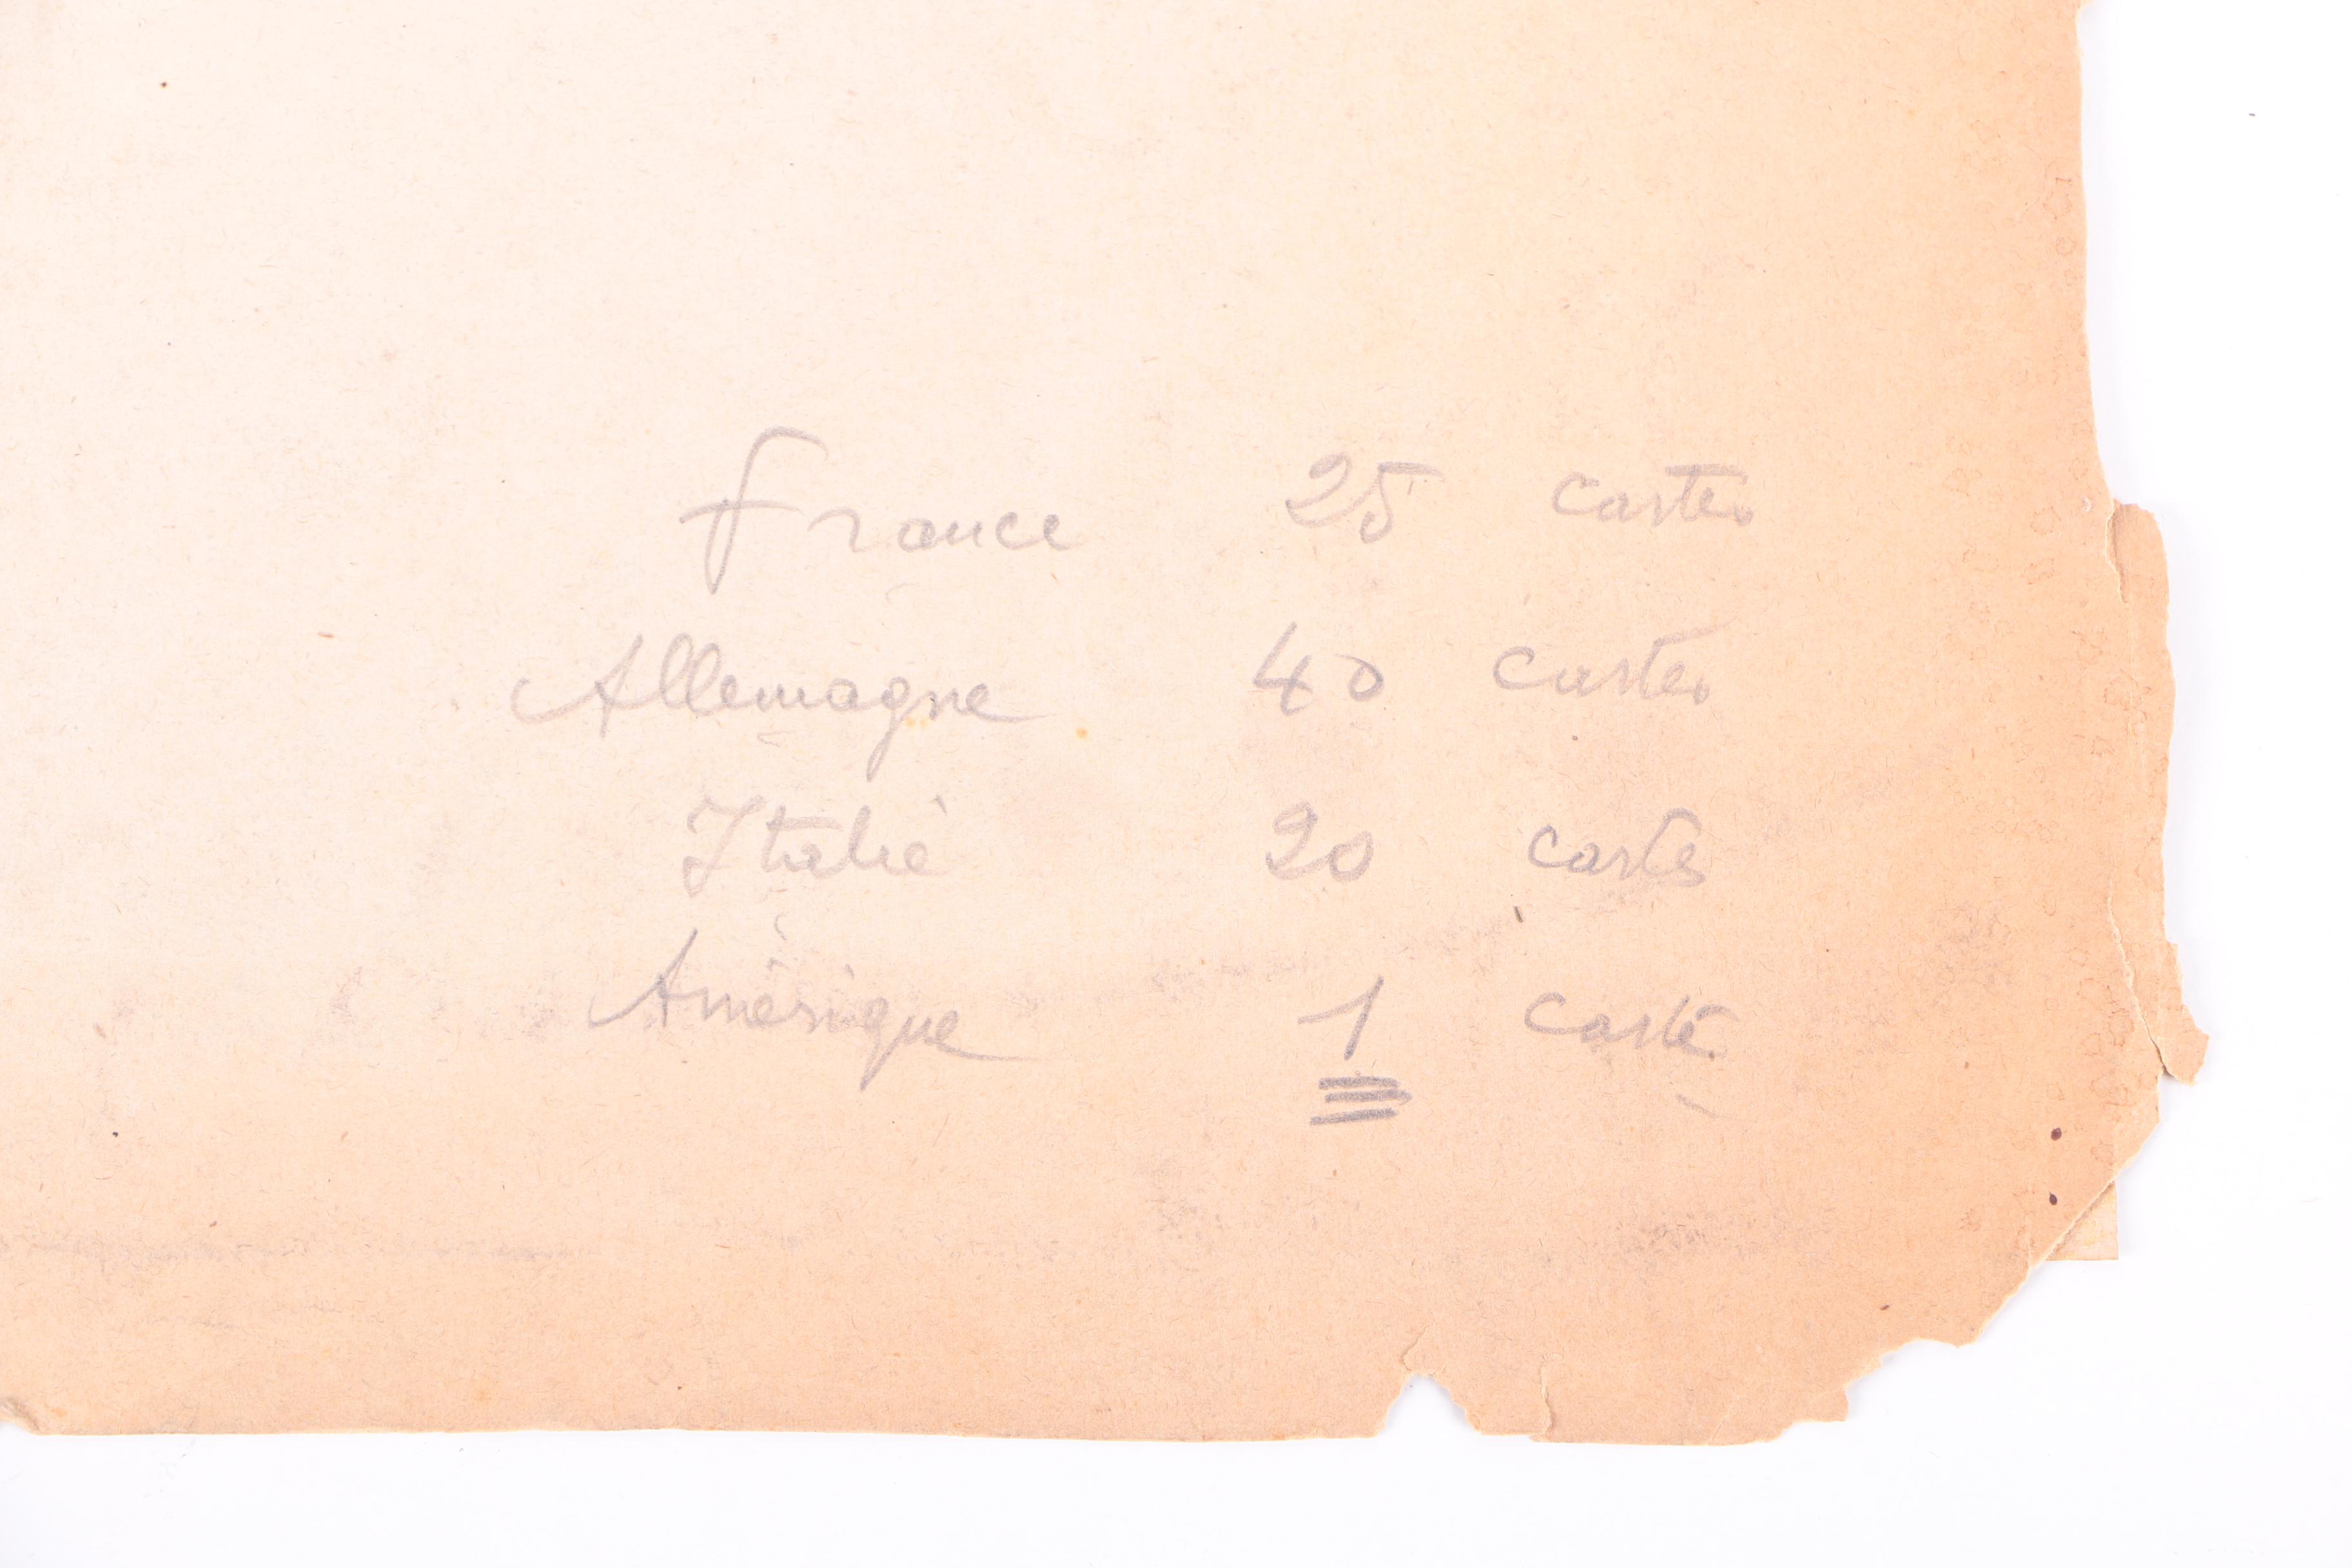 France 25 cartes
Allemagne 40 cartes
Italie 20 cartes
Amérique 1 carte